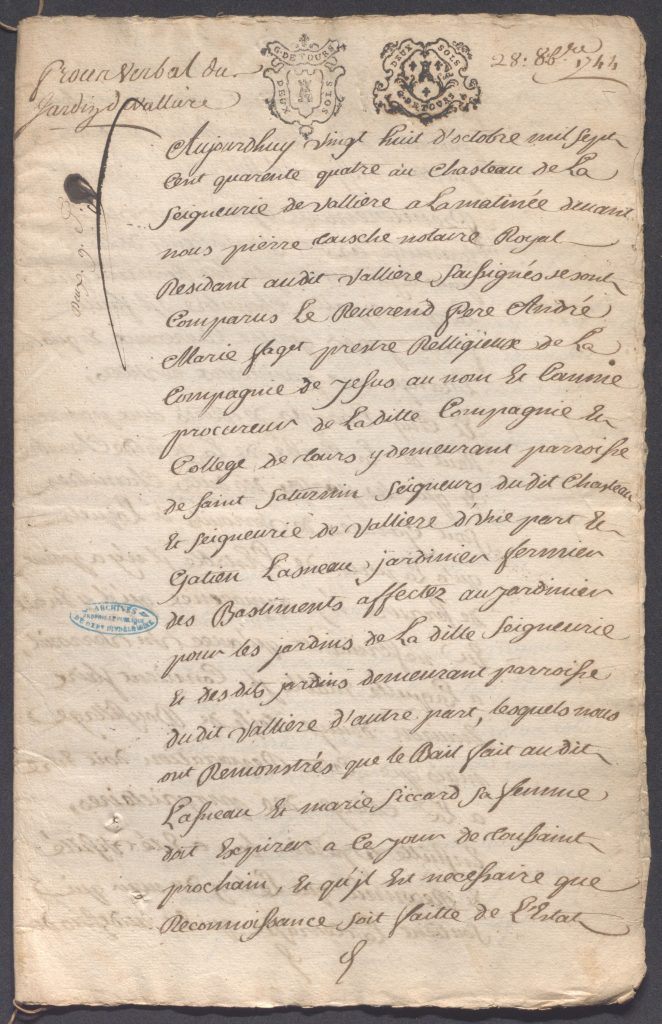 Procer Verbal du
Jardin de valliere
G. DE TOURS
DEUX SOLS
DEUX SOLS
G. DE TOURS
28: 8b.re 1744
Aujourdhuy vingt huit d'octobre mil sept
Cent quarente quatre au Chasteau de La
Seigneurie de valliere a La matinée devant
nous pierre notaire Royal
Residant audit valliere Soussignés se sont
Comparus Le Reverend pere André
Marie faget prestre Relligieux de La
Compagnie de Jesus au nom Et Comme
procureur de Laditte Compagnie Et
College de tours y demeurant parroisse
de saint Saturnin Seigneurs dudit Chasteau
Et seigneurie de valliere d'Une part Et
Gatien Lasneau, jardinier fermier
des Bastiments affectez au jardinier
pour les jardins de La ditte Seigneurie
Et des dits jardins demeurant parroisse
dudit valliere d'autre part, lesquels nous
ont Remonstrés que le Bail fait audit
Lasneau Et marie Siccard sa femme
doit Expirer a Ce jour de toussaint
prochain, Et qu'jl Est necessaire que
Reconnoissance soit faitte de L'Estat
ARCHIVES